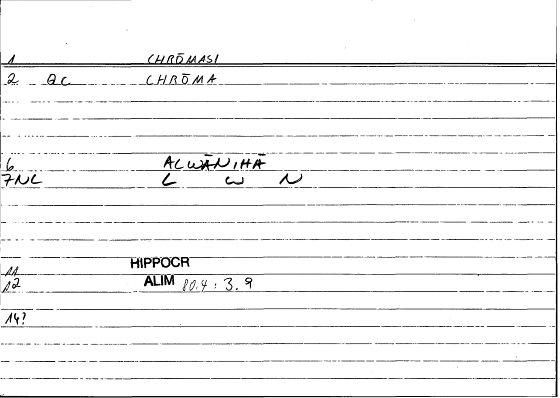 1 CHRŌMASI
2 QC CHRŌMA
6 ALWĀNIHĀ
7NC L W N
11 HIPPOCR
12 ALIM 80.4 : 3.9
14?